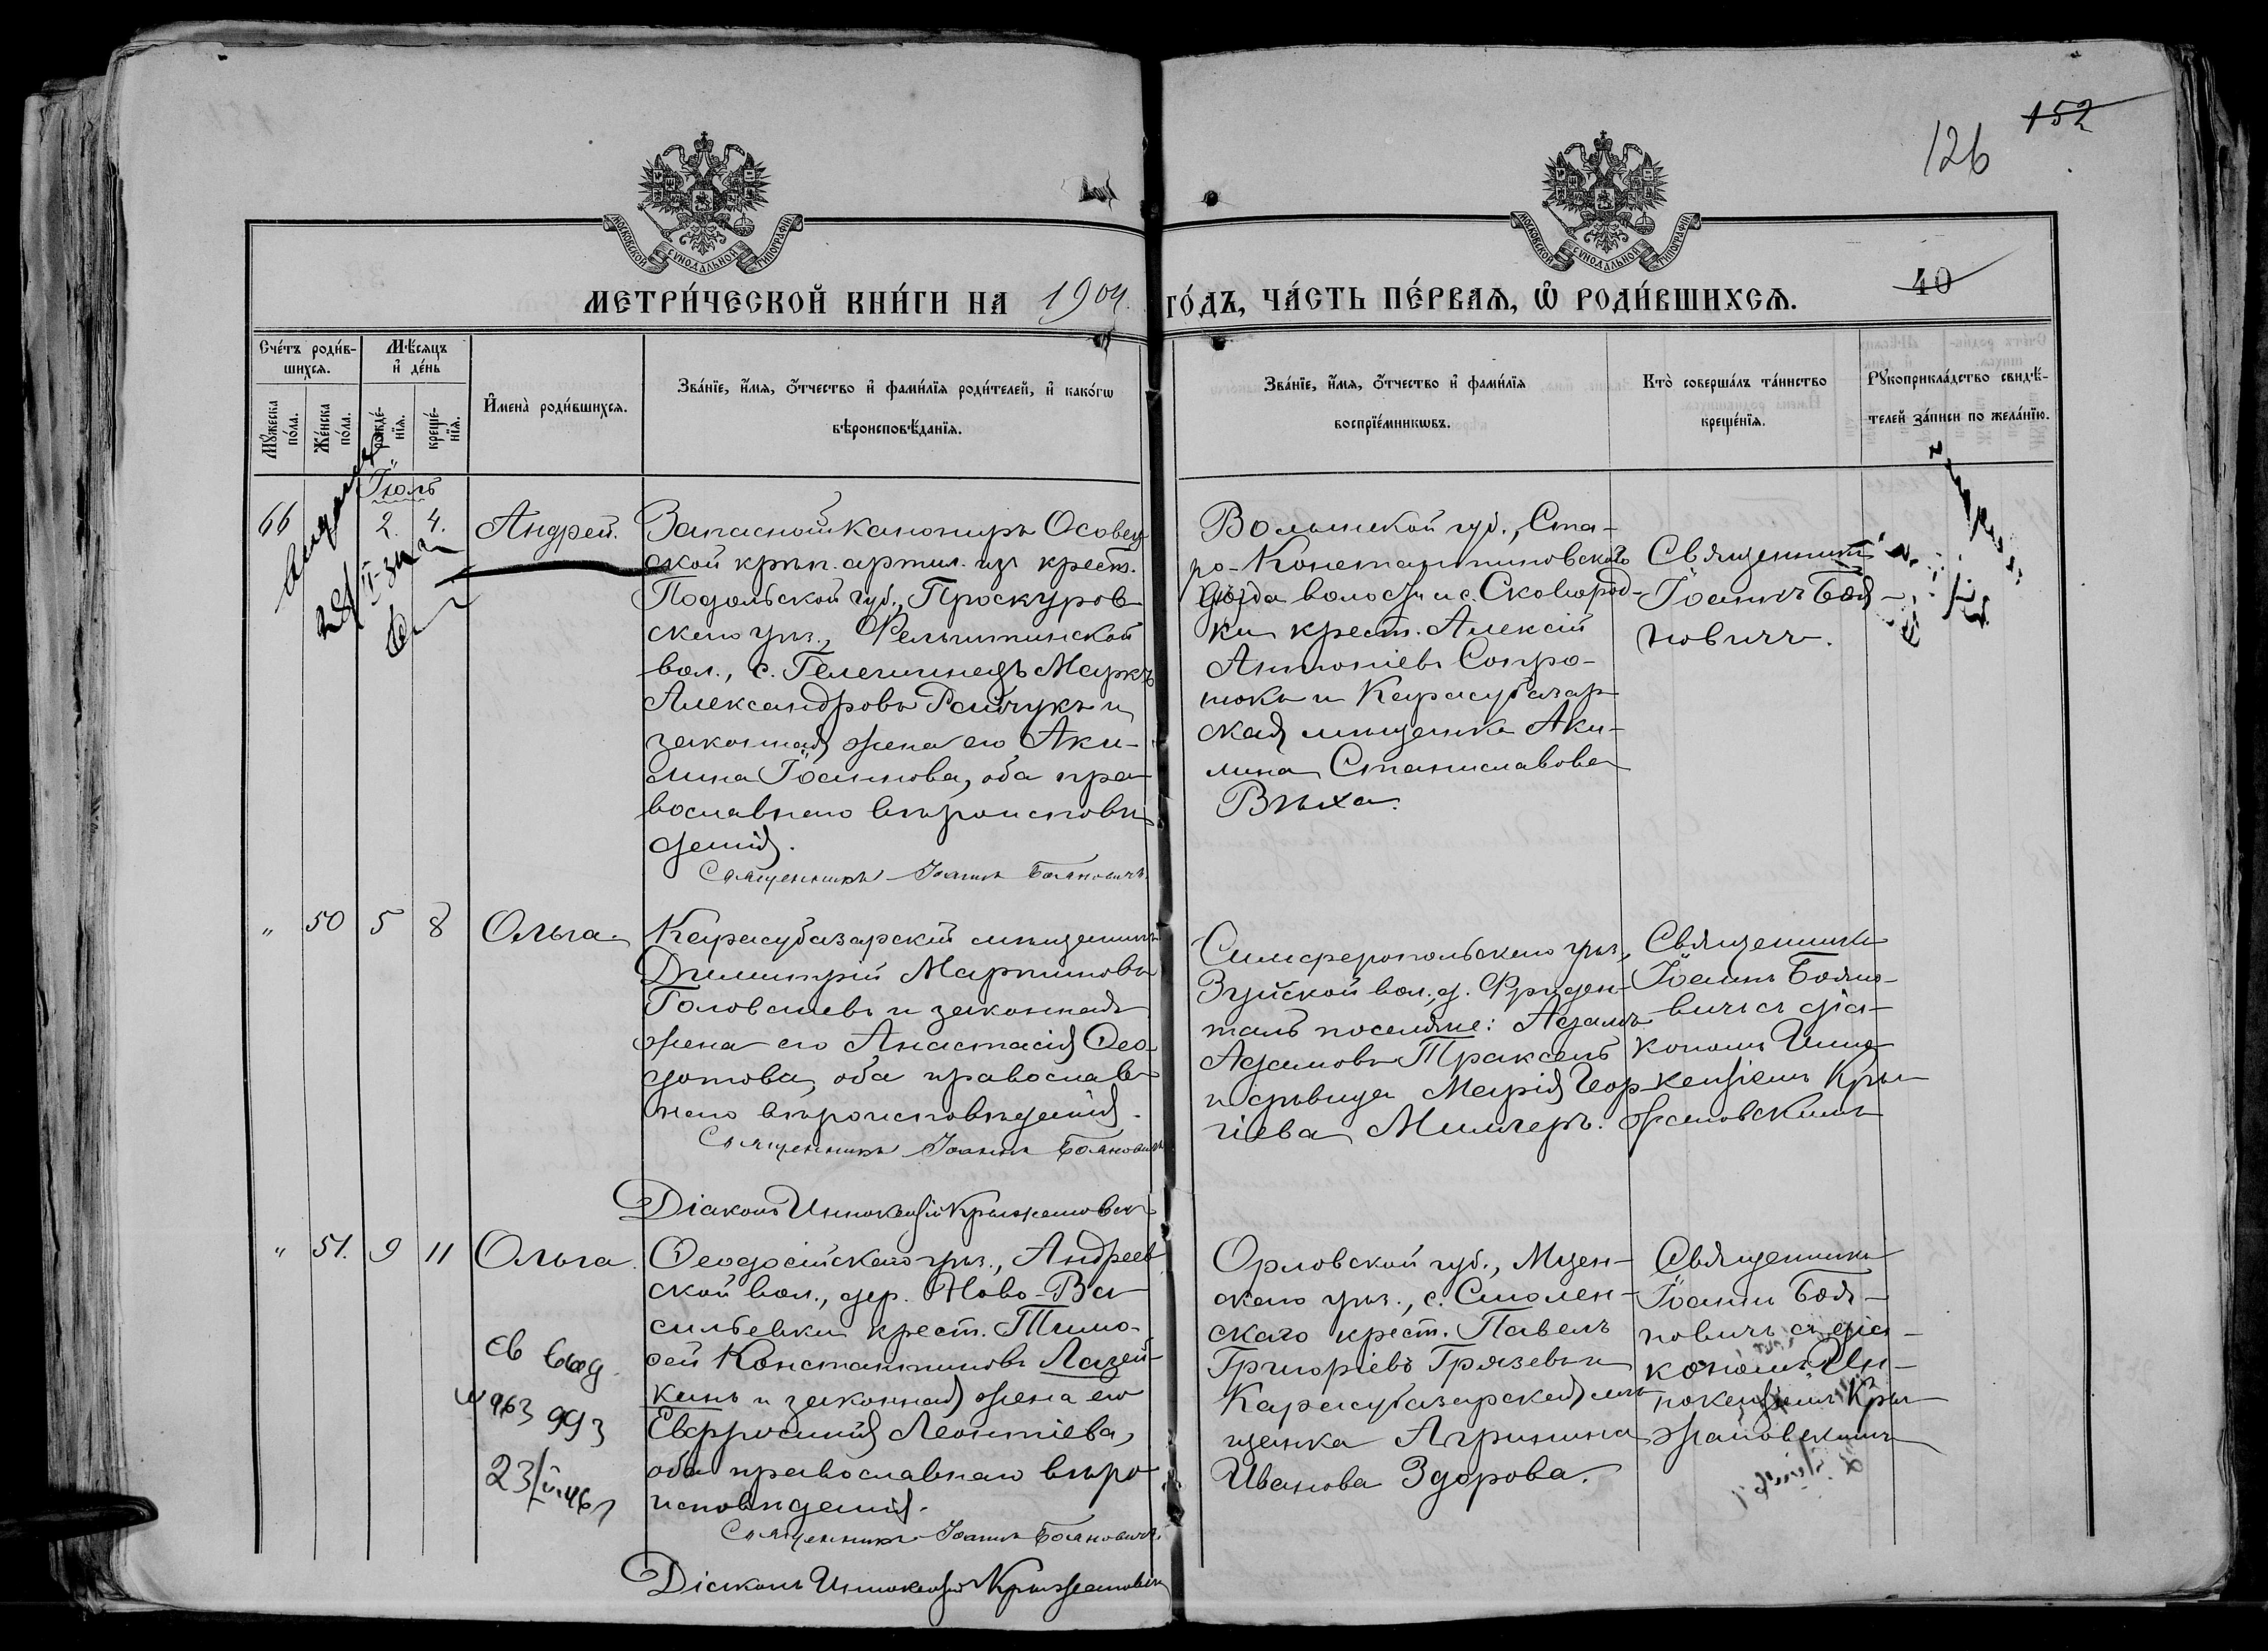 152
126
МОСКОВСКОЙ СУНОДАЛЬНОЙ ТИПОГРАФІИ
МОСКОВСКОЙ СУНОДАЛЬНОЙ ТИПОГРАФІИ
МЕТРИ́ЧЕСКОЙ КНИ́ГИ НА 1904
ГО́ДЪ, ЧА́СТЬ ПЕ́РВАЯ, Ѡ҆ РОДИ́ВШИХСЯ.
40
Сче́тъ роди́в-
шихся.
Мѣ́сяцъ
и҆ де́нь
Мꙋ́жеска
по́ла.
Же́нска
по́ла.
рожде́-
нїя.
креще́-
нїя.
И҆мена̀ роди́вшихся.
Зва́нїе, и҆́мя, о҆́тчество и҆ фами́лїя роди́телей, и҆ како́гѡ
вѣроисповѣ́данїя.
Зва́нїе, и҆́мя, о҆́тчество и҆ фами́лїя
воспрїе́мникѡвъ.
Кто̀ соверша́лъ та́инство
креще́нїя.
Рꙋкоприкла́дство свидѣ́-
телей за́писи по жела́нїю.
Іюль
66
2. 4.
Андрей.
Запасной канониръ Осовец
ской крѣп. артил. из крест.
Подольской губ., Проскуров
скаго уѣз., Фельштинской
вол., с. Гелетинецъ Маркъ
Александровъ Райчукъ и
законная жена его Аки-
лина Іоаннова, оба пра
вославнаго вѣроисповѣ
денія.
Священникъ Іоаннъ Бояновичъ.
Волынской губ., Ста-
ро-Константиновскаго
уѣзда волости и с. Сковород-
ки крест. Алексій
Антоніевъ Сопро-
нюкъ и Карасубазар
ская мѣщанка Аки-
лина Станиславова
Вѣха.
Священникъ
Іоаннъ Боя-
новичъ.
" 50 5 8
Ольга.
Карасубазарскій мѣщанинъ
Димитрій Мартиновъ
Головачевъ и законная
жена его Анастасія Ѳео
дотова, оба православ
наго вѣроисповѣданія.
Священникъ Іоаннъ Бояновичъ
Діаконъ Иннокентій Крыжановск
Симферопольскаго уѣз.,
Зуйской вол., д. Фриден-
таль поселяне: Адамъ
Адамовъ Траксель
и дѣвица Марія Геор-
гіева Миллеръ.
Священникъ
Іоаннъ Бояно-
вичъ с діа-
кономъ Инно
кентіемъ Кры
жановскимъ
" 51. 9 11
Ольга.
Ѳеодосійскаго уѣз., Андреев
ской вол., дер. Ново-Ва
сильевки крест. Тимо-
ѳей Константиновъ Лазей-
кинъ и законная жена его
Евфросинія Леонтіева,
оба православнаго вѣро
исповѣданія.
Священникъ Іоаннъ Бояновичъ.
Діаконъ Иннокентій Крыжановск
Орловской губ., Мцен-
скаго уѣз., с. Смолен-
скаго крест. Павелъ
Григоріевъ Грязевъ и
Карасубазарская мѣ
щанка Агрипина
Иванова Здорова.
Священникъ
Іоаннъ Боя-
новичъ съ діа-
кономъ Ин-
нокентіемъ Кры
жановскимъ